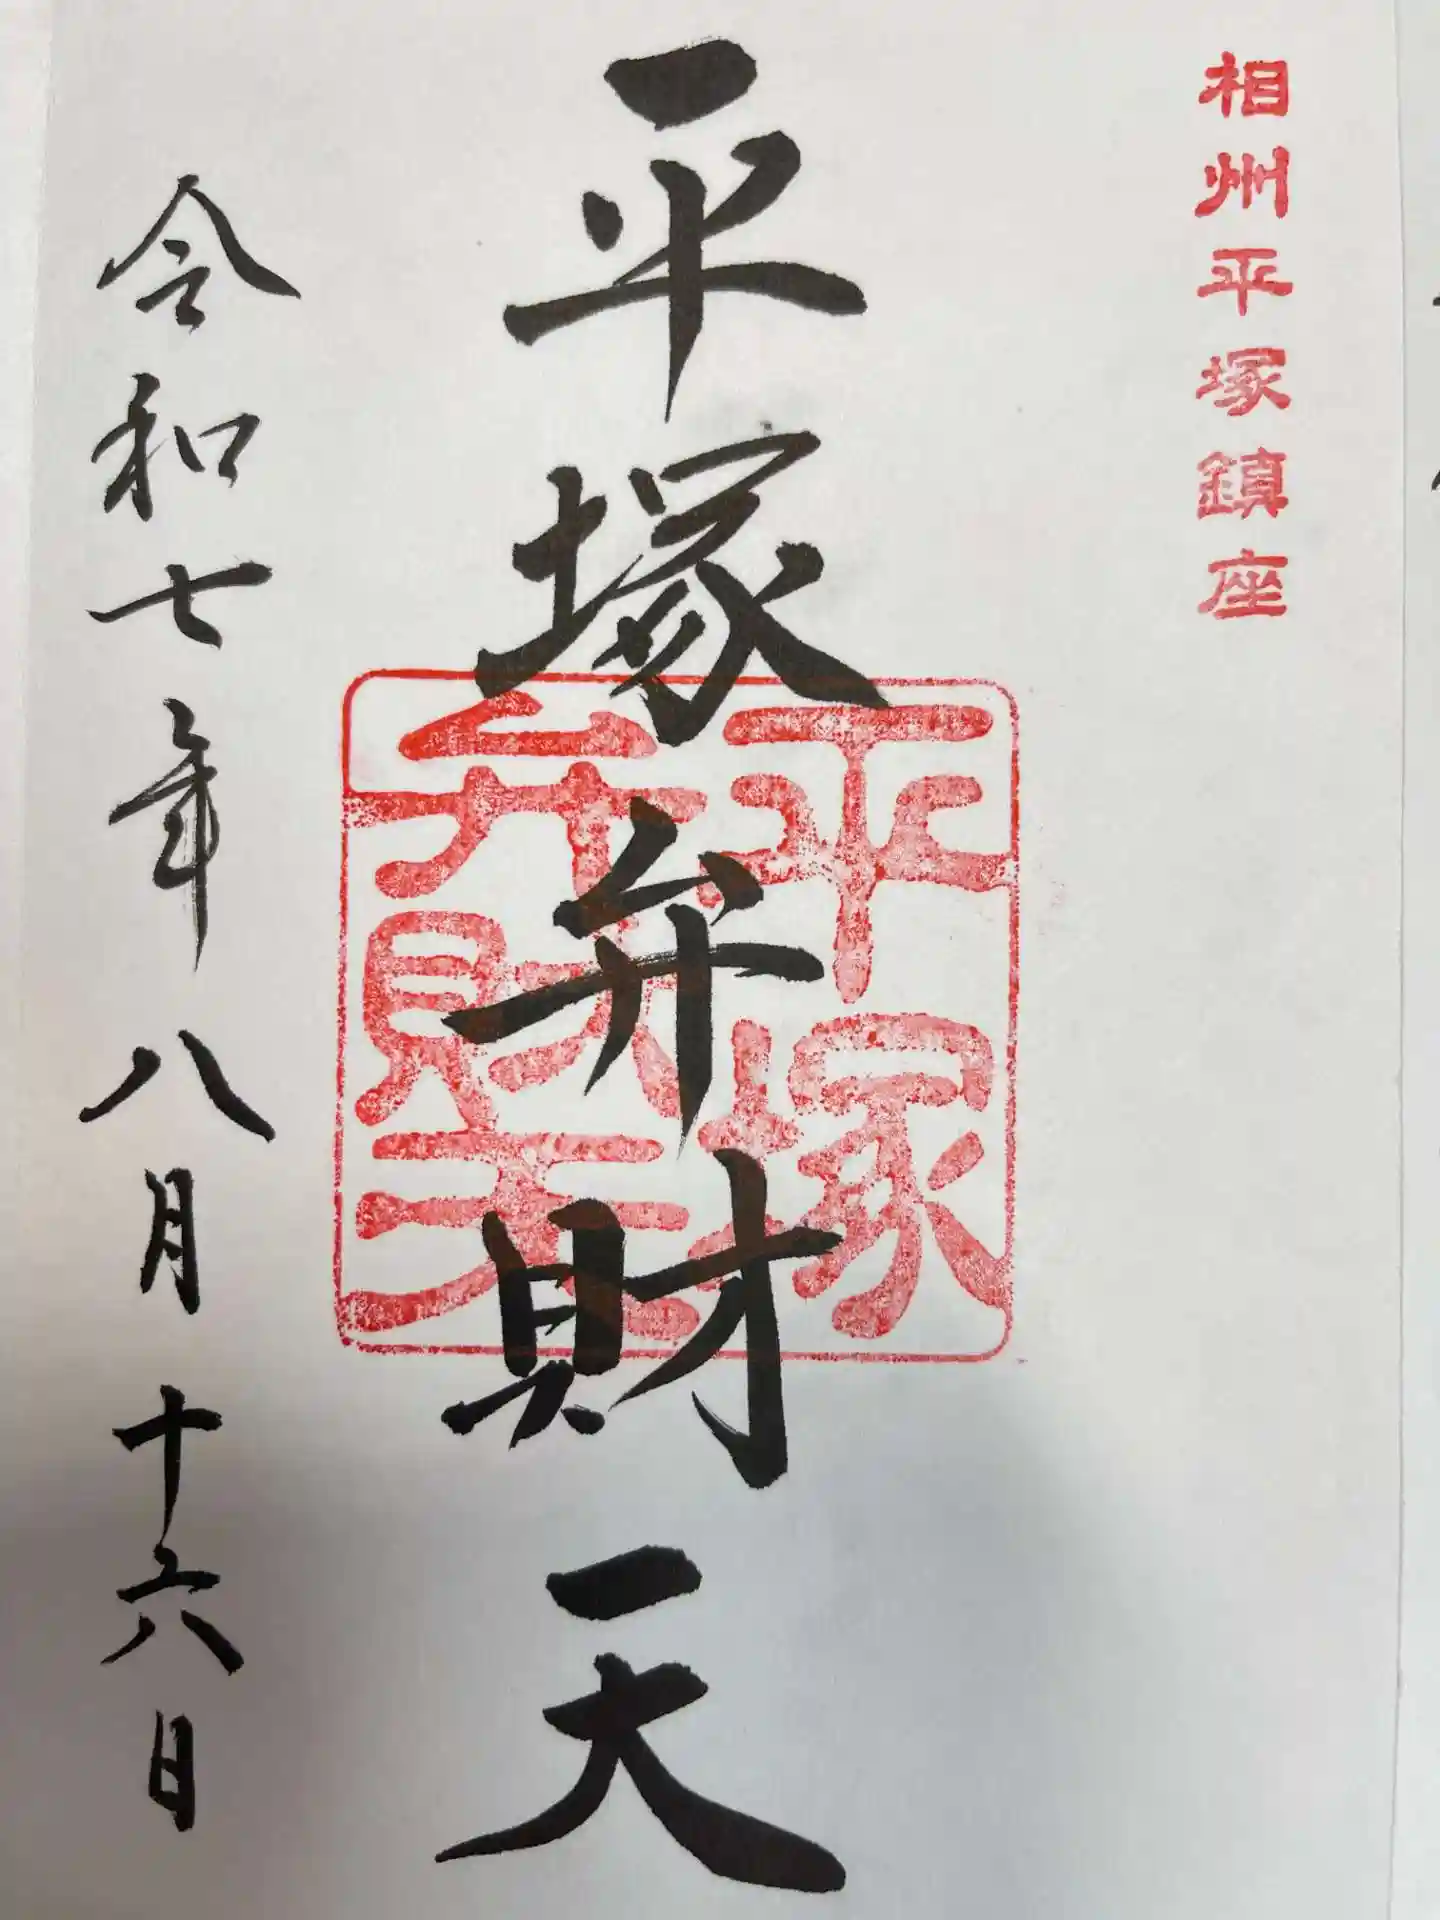 相州平塚鎮座
平塚弁財天
平塚
弁財天
令和七年八月十六日